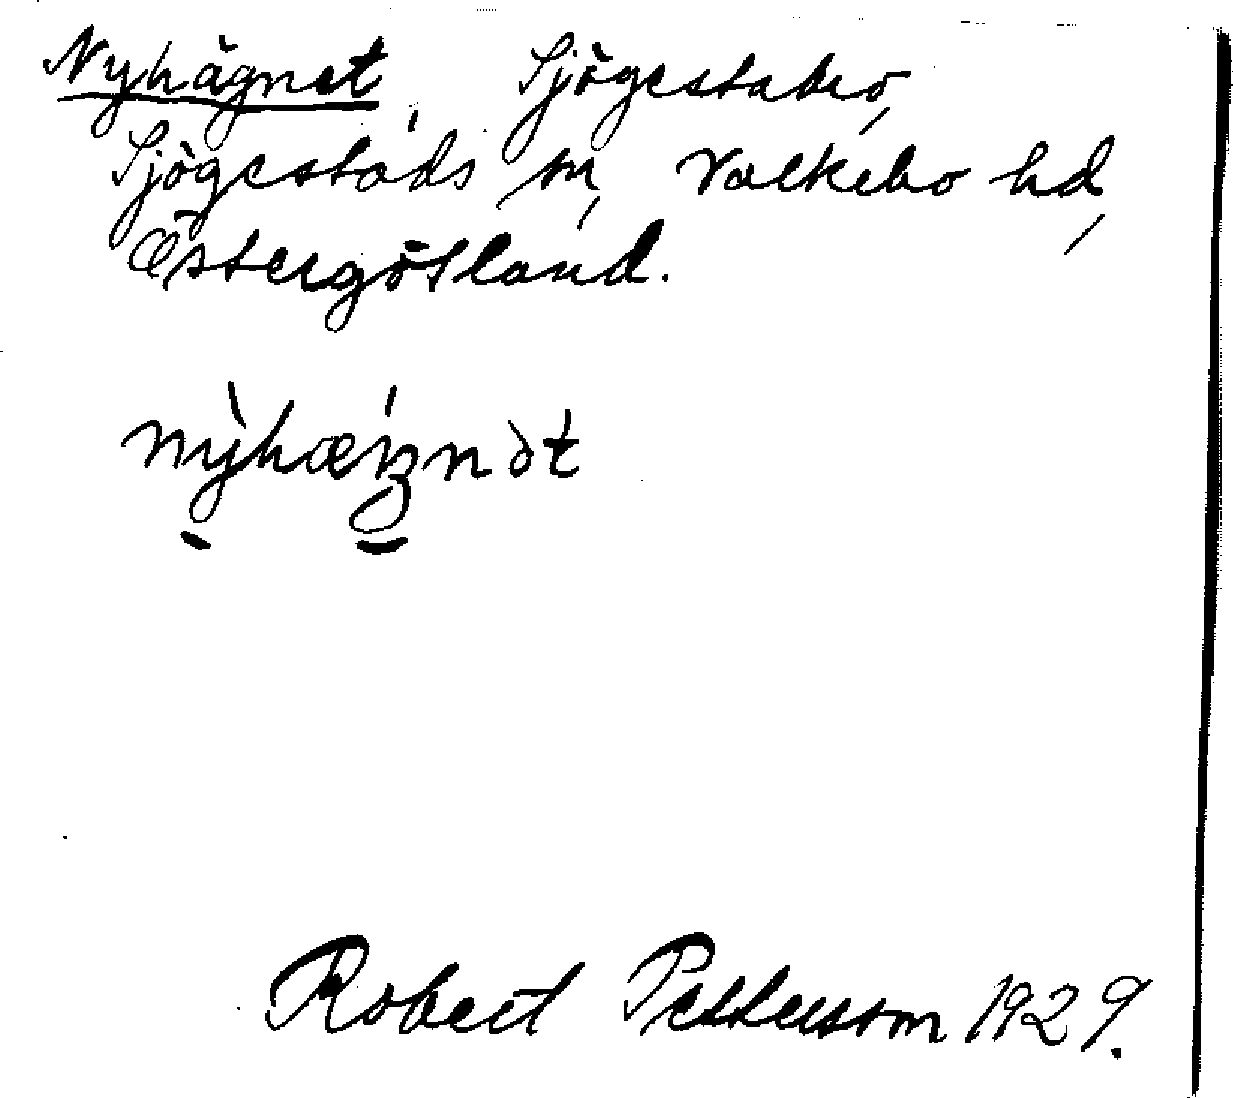 Nyhägnet, Sjögestabro,
Sjögestads sn, Valkebo hd,
Östergötland.
nỳhǽɪʒnət
Robert Pettersson 1929.